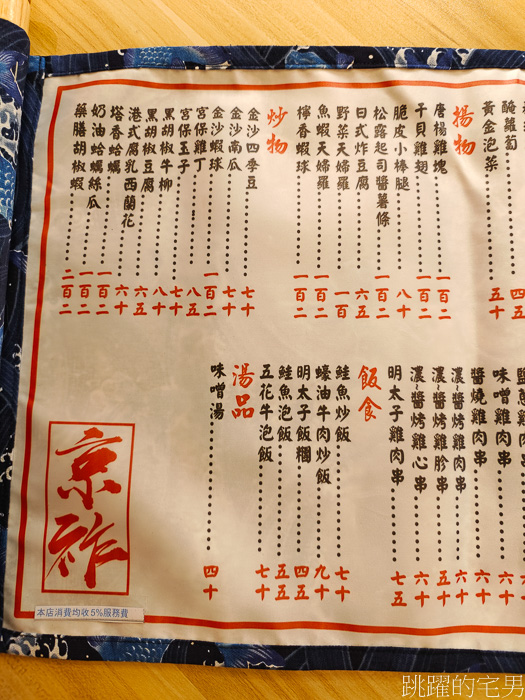 醃蘿蔔 四五
黃金泡菜 五十
揚物
唐揚雞塊 一百二
干貝雞翅 一百二
脆皮小棒腿 八十
松露起司醬薯條 一百二
日式炸豆腐 六五
野菜天婦羅 一百
魚蝦天婦羅 一百二
檸香蝦球 一百二
炒物
金沙四季豆 七十
金沙南瓜 七十
金沙蝦球 一百二
宮保雞丁 八五
宮保玉子 七十
黑胡椒牛柳 八十
黑胡椒豆腐 六五
港式腐乳西蘭花 六十
塔香蛤蠣 一百二
奶油蛤蠣絲瓜 一百二
藥膳胡椒蝦 二百二
味噌雞肉串 六十
醬燒雞肉串 六十
濃~醬烤雞肉串 六十
濃~醬烤雞胗串 五五
濃~醬烤雞心串 六十
明太子雞肉串 七五
飯食
鮭魚炒飯 七十
蠔油牛肉炒飯 九十
明太子飯糰 四五
鮭魚泡飯 五五
五花牛泡飯 七十
湯品
味噌湯 四十
京祚
本店消費均收5%服務費
跳躍的宅男